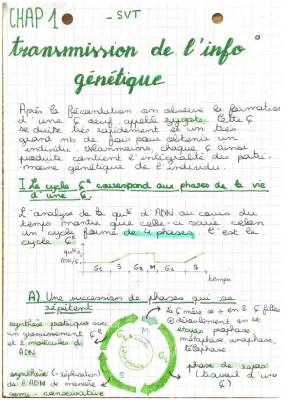 CHAP 1
- SVT
transmission de l'info°
génétique
Après la fécondation on observe la formation
d'une ₵ œuf appelée zygote. Cette ₵
se divise très rapidement et un très
grand nb de fois pour obtenir un
individu. Néanmoins, chaque ₵ ainsi
produite contient l'intégralité du patri-
moine génétique de l'individu.
I Le cycle ₵re correspond aux phases de la vie
d'une ₵.
L'analyse de la qté d'ADN au cours du
temps montre que celle-ci varie selon
un cycle formé de 4 phases. C'est le
cycle ₵re
qté
ADN/₵
G1 S G2 M G1 S
temps
A) Une succession de phases qui se
répètent
synthèse protéique avec
un grossissement ₵re
et 2 molécules d'
ADN.
La ₵ mère → en 2 ₵ filles
déroulement en
étapes prophase
métaphase, anaphase,
télophase
M
G1
S
G2
synthèse (= réplication)
de l'ADN de manière
semi-conservative
phase de repos
(travail d'une
₵)